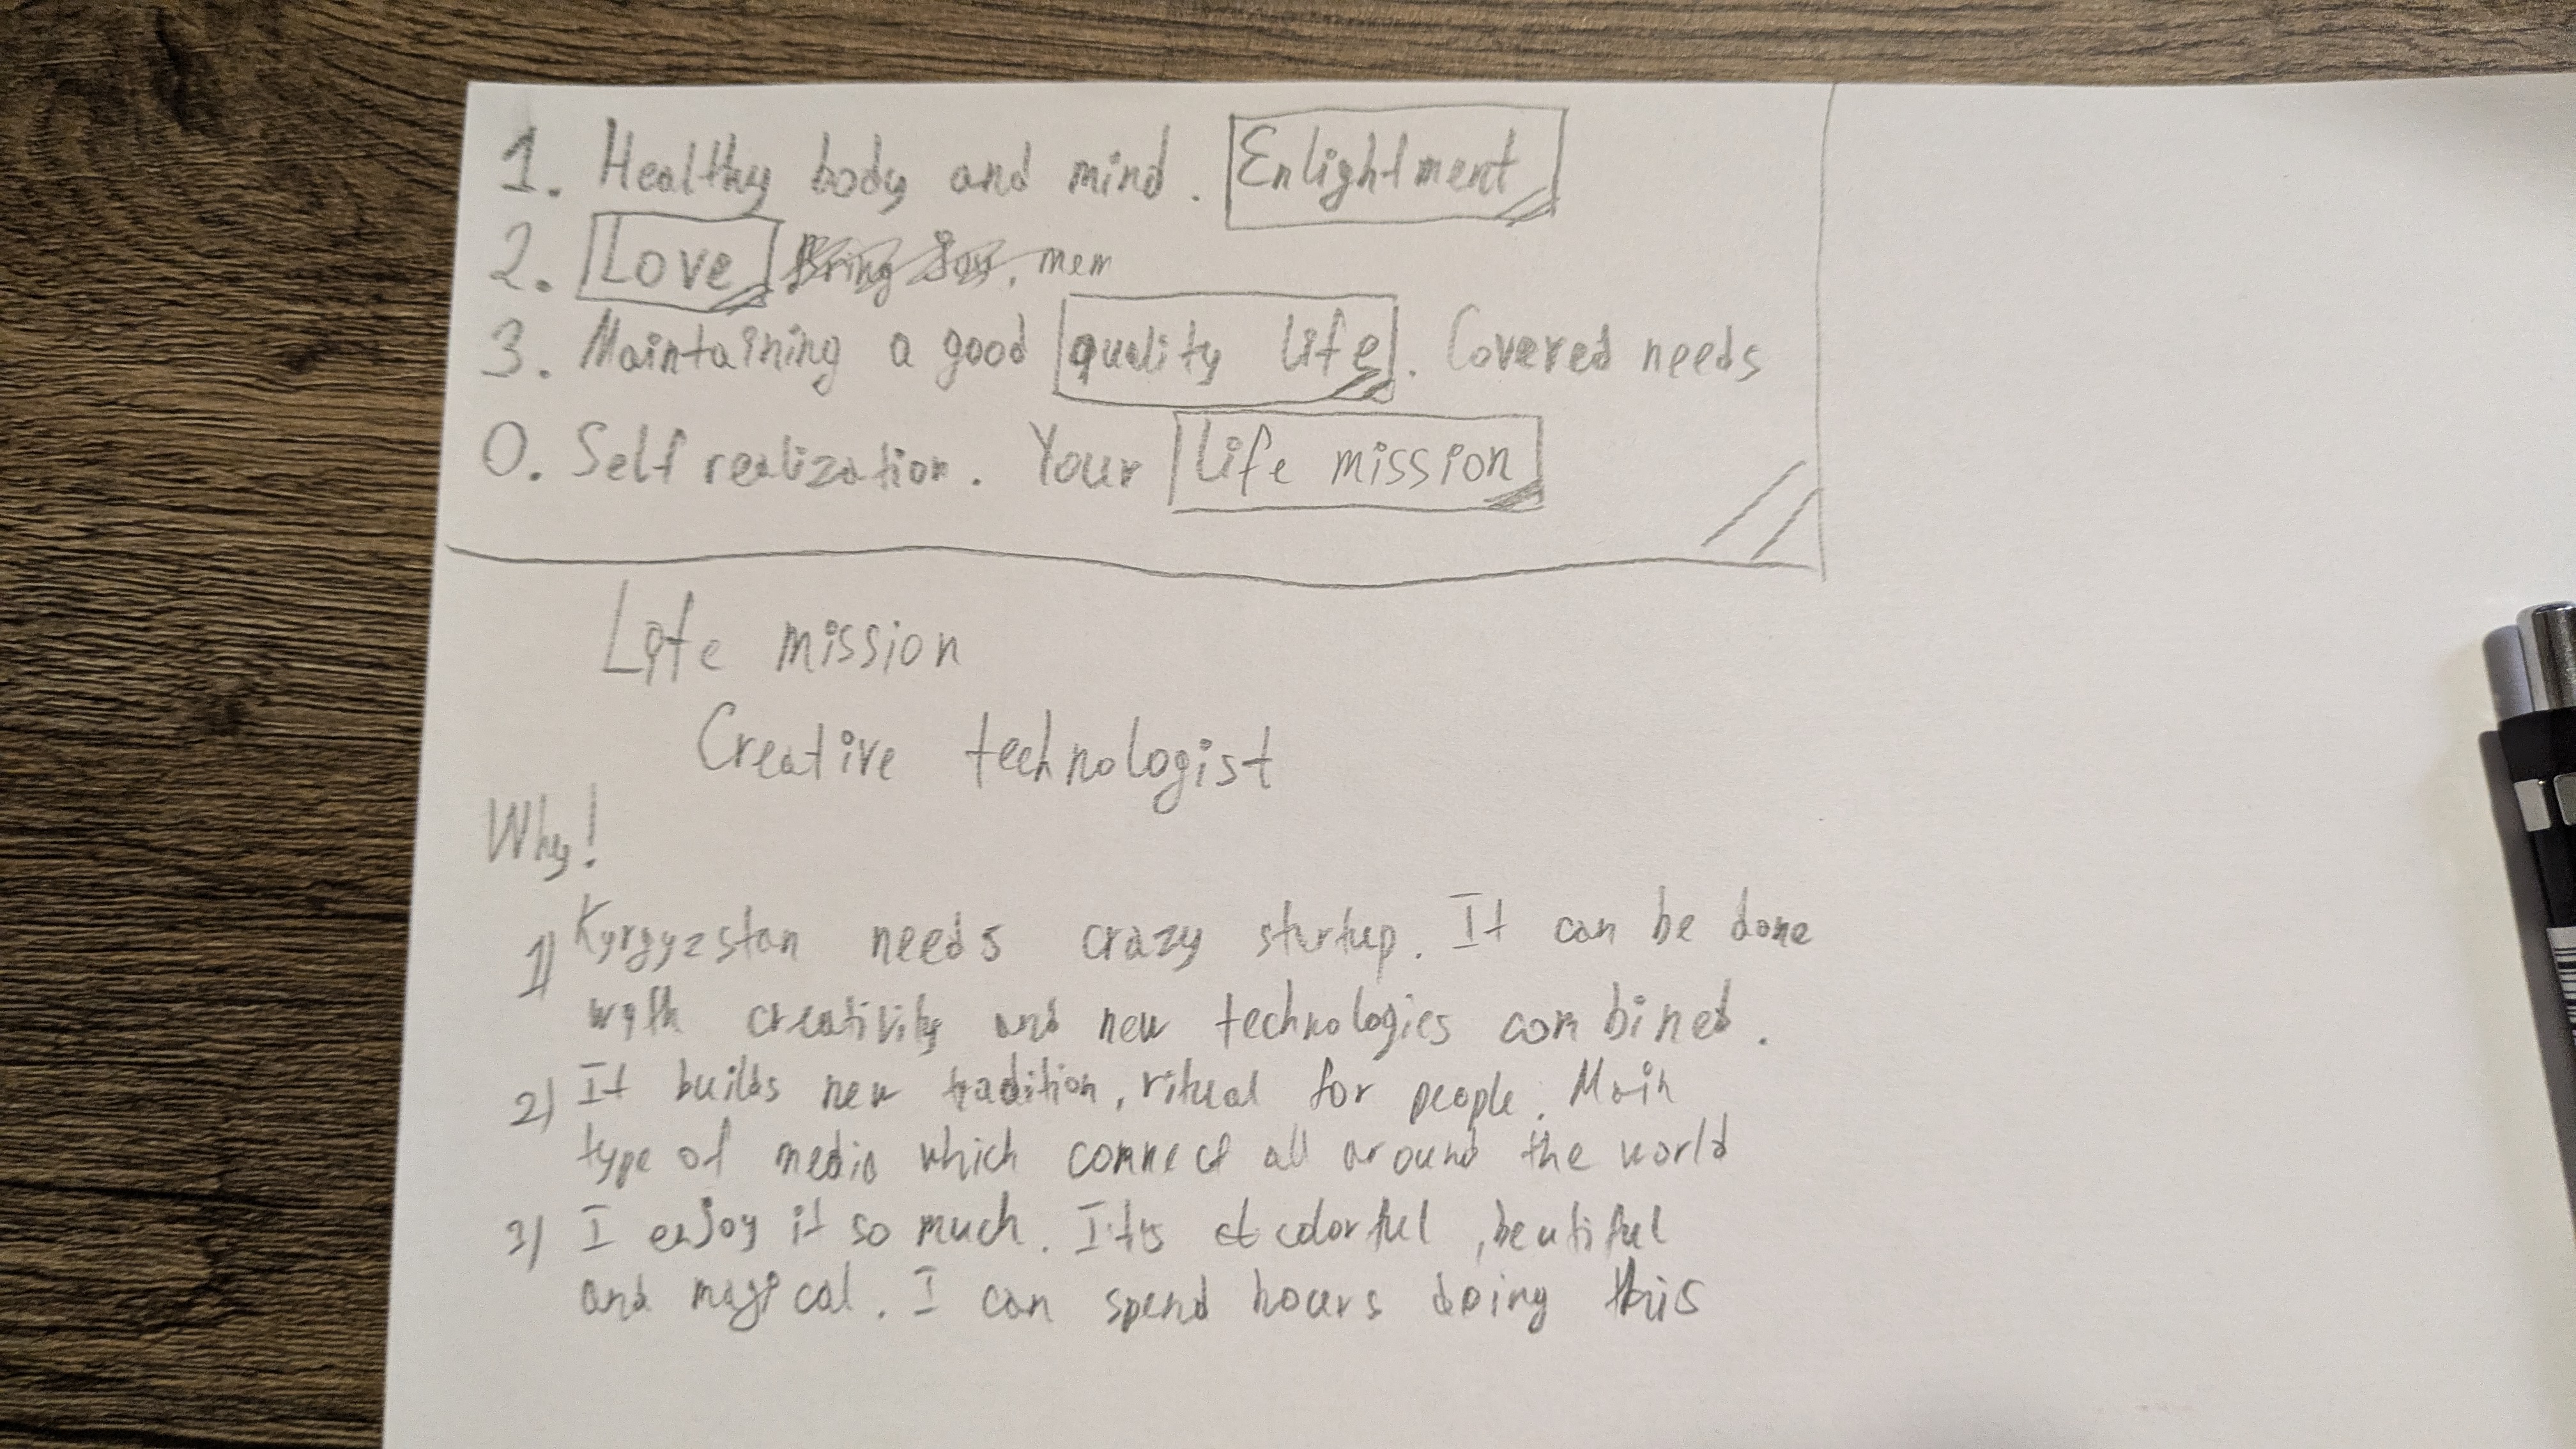 1. Healthy body and mind. Enlightment
2. Love
3. Maintaining a good quality life. Covered needs
0. Self realization. Your life mission
Life mission
Creative technologist
Why!
1) Kyrgyzstan needs crazy sturtup. It can be done
with creativity and new technologies combined.
2) It builds new tradition, ritual for people. Main
type of media which connect all around the world
3) I enjoy it so much. It's colorful, beutiful
and magical. I can spend hours doing this